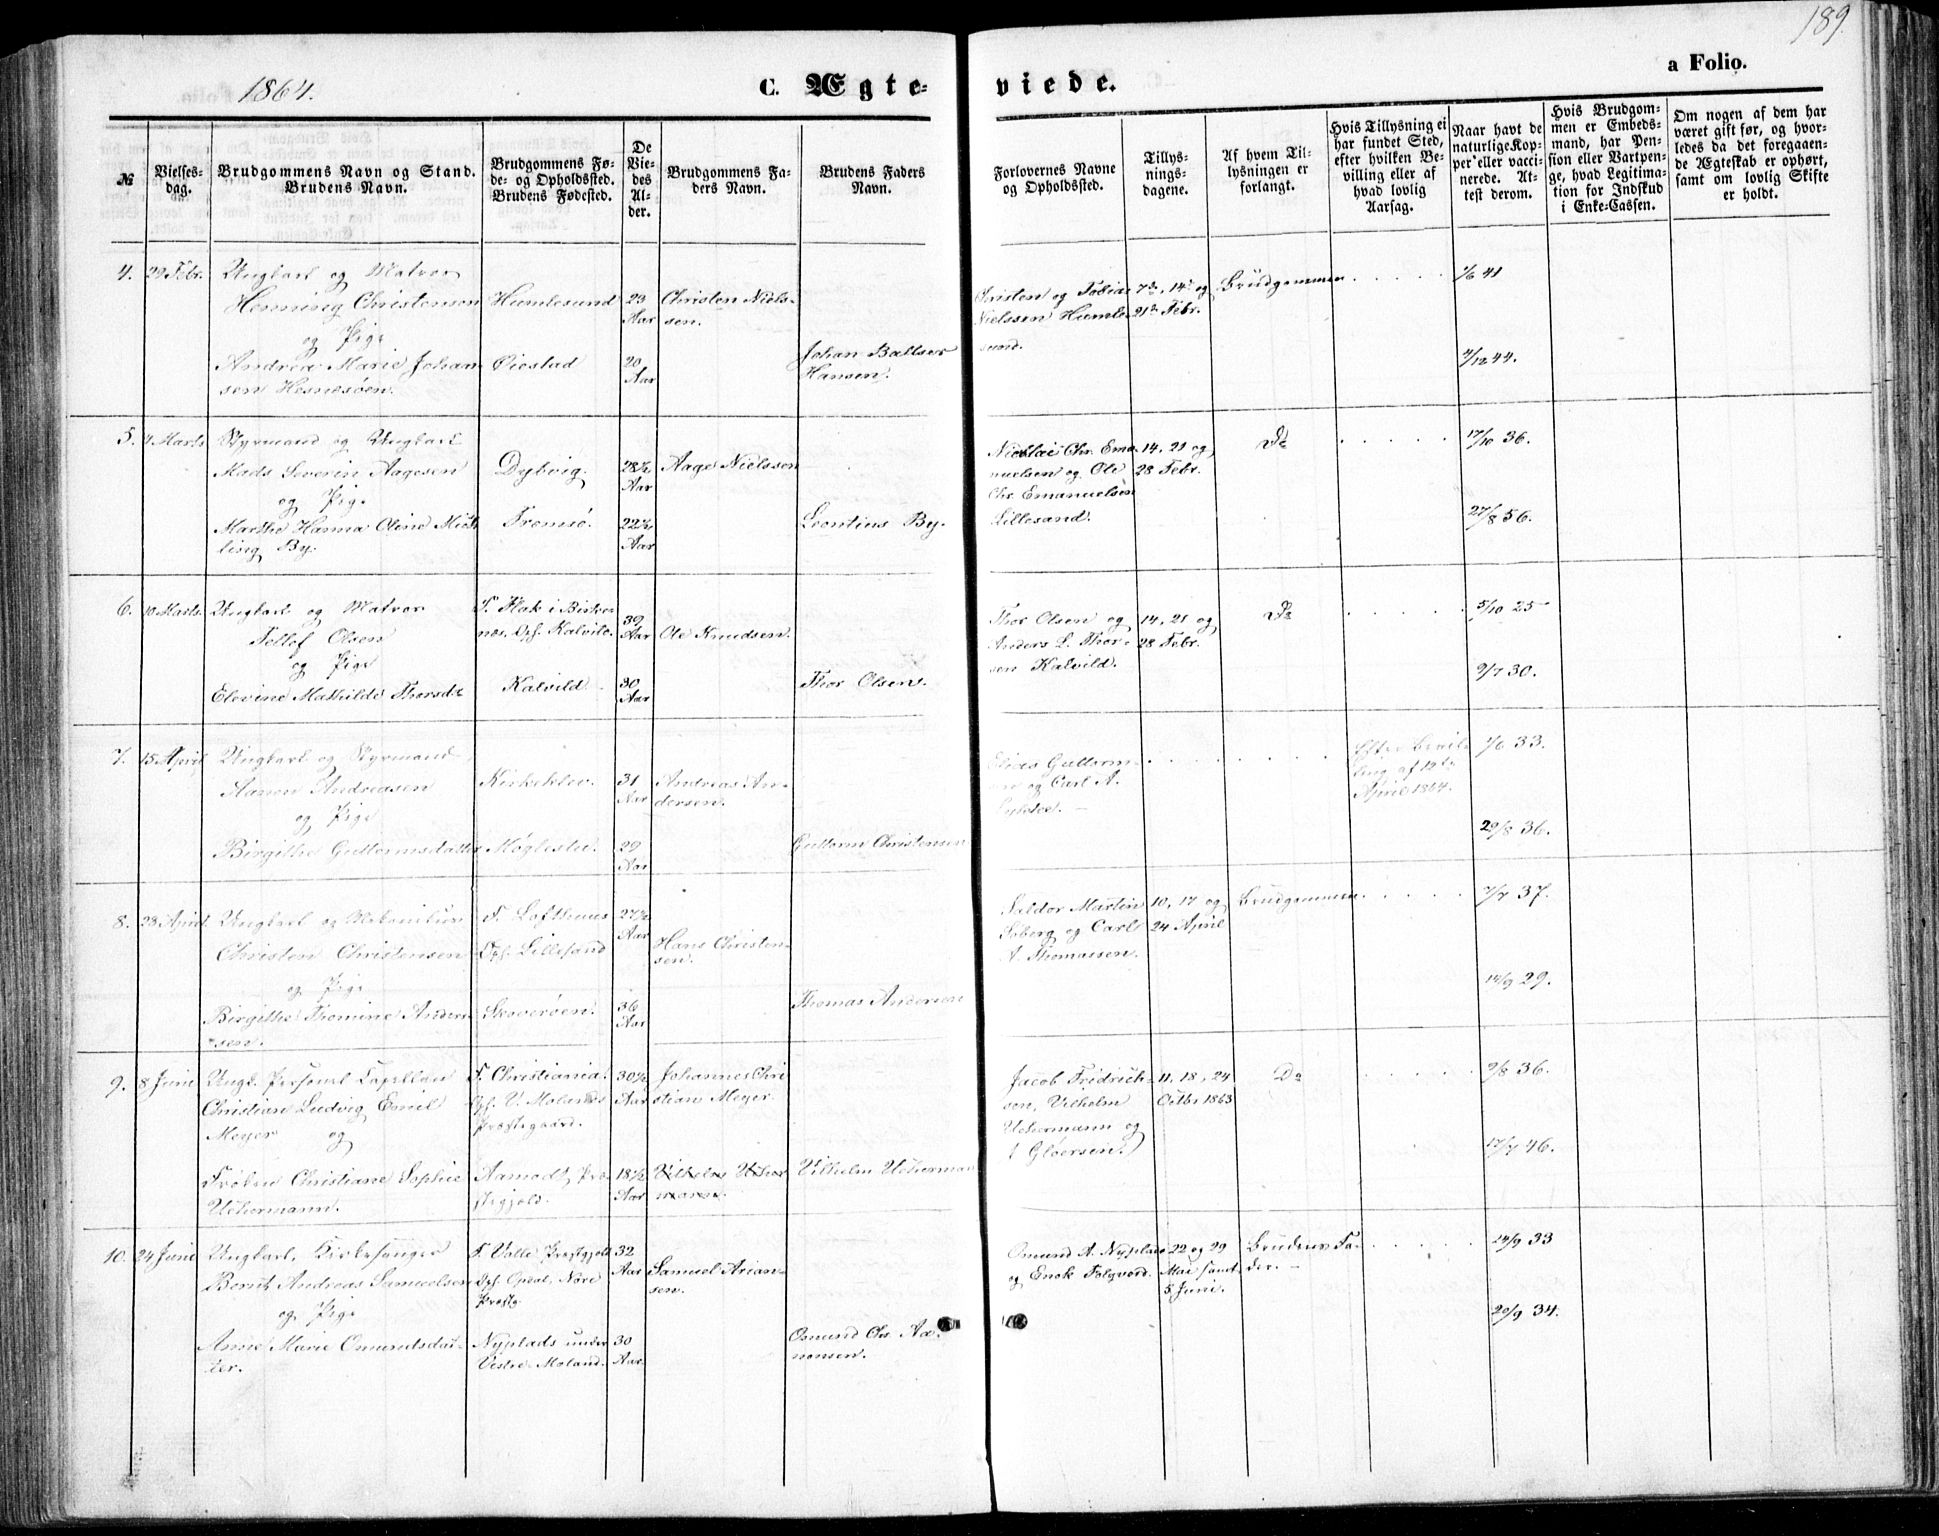 189.
1864.
C. Ægte-
viede.
a Folio.
№
Vielses-
dag.
Brudgommens Navn og Stand.
Brudens Navn.
Brudgommens Fø-
de- og Opholdssted.
Brudens Fødested.
De
Vie-
des
Al-
der.
Brudgommens Fa-
ders Navn.
Brudens Faders
Navn.
Forlovernes Navne
og Opholdssted.
Tillys-
nings-
dagene.
Af hvem Til-
lysningen er
forlangt.
Hvis Tillysning ei
har fundet Sted,
efter hvilken Be-
villing eller af
hvad lovlig
Aarsag.
Naar havt de
naturlige Kop-
per eller vacci-
nerede. At-
test derom.
Hvis Brudgom-
men er Embeds-
mand, har Pen-
sion eller Vartpen-
ge, hvad Legitima-
tion for Indskud
i Enke-Cassen.
Om nogen af dem har
været gift før, og hvor-
ledes da det foregaaen-
de Ægteskab er ophørt,
samt om lovlig Skifte
er holdt.
4.
29 Febr.
Ungkarl og Matros
Henning Christensen
og Pige
Andrea Marie Johan
sen Hesnesøen.
Humlesund
Øiestad
23
Aar
20
Aar
Christen Niels-
sen.
Johan Baltser
Hansen.
Christen og Tobias
Nielssen Humle
sund.
7de, 14de og
21de Febr.
Brudgommen
1/6 41
4/12 44.
5.
4 Marts
Styrmand og Ungkarl
Mads Severin Aagesen
og Pige
Marthe Hanna Oline
ling By.
Dybvig
Tromsø.
28½
Aar
22½
Aar
Aage Nielssen
Leontius By.
Nicolai Chr. Ema
nuelsen og Ole
Chr. Emanuelsen
Lillesand.
14, 21 og
28 Febr.
Do
17/10 36.
27/8 56.
6.
10 Marts.
Ungkarl og Matros
Tellef Olsen
og Pige
Elevine Mathilde Thorsdt
F. Flak i Birke-
næs. Opf. Kalvild.
Kalvild
39
Aar
30
Aar
Ole Knudsen.
Thor Olsen.
Thor Olsen og
Anders L. Thor-
sen Kalvild.
14, 21 og
28 Febr.
Do
5/10 25
9/7 30.
7.
15 April
Ungkarl og Styrmand
Aanon Andreasen
og Pige
Birgithe Guttormsdatter
Kirkekleo.
Møglestu.
31
Aar
29
Aar
Andreas An-
dersen.
Guttorm Christensen
Elias Guttorm
sen og Carl A.
Efter Bevil-
ling af 12te
April 1864.
1/6 33.
29/8 36.
8.
28 April
Ungkarl og
Christen Christensen
og Pige
Birgithe Thomine Anders
sen.
F. Lofthuus
Opf. Lillesand
Skoverøen.
27½
Aar
36
Aar
Hans Christen-
sen.
Thomas Andersen
Saldor Martin
Søberg og Carl
A. Thomassen.
10, 17 og
24 April
Brudgommen
7/7 37.
14/9 29.
9.
8 Juni
Ungk. Personel Capellan
Christian Ludvig Emil
Meyer og
Frøken Christiane Sophie
Uchermann.
F. Christiania.
Opf. V. Molands
Præstegaard.
Aamodt Præ
stegjeld.
30½
Aar
18½
Aar
Johannes Chri
stian Meyer.
Vilhelm Ucher
mann.
Vilhelm Ucherman
Jacob Fridrich-
sen, Vilhelm
Uchermann og
Gløersen.
11, 18, 24
Octbr 1863
Do
9/8 36.
17/7 46.
10.
24 Juni
Ungkarl, Kirkesanger
Bernt Andreas Samuelsen
og Pige
Anne Marie Omundsdat-
ter.
F. Valle Præstgjeld
Opf. Opdal, Nore
Præstg.
Nyplads under
Vestre Moland.
32
Aar
30
Aar.
Samuel Arian-
sen.
Omund Chr. Aa-
nonsen.
Omund A. Nyplads
og Enok Følgvord.
22 og 29
Mai samt
5 Juni.
Brudens Fa-
der.
24/9 33
20/9 34.